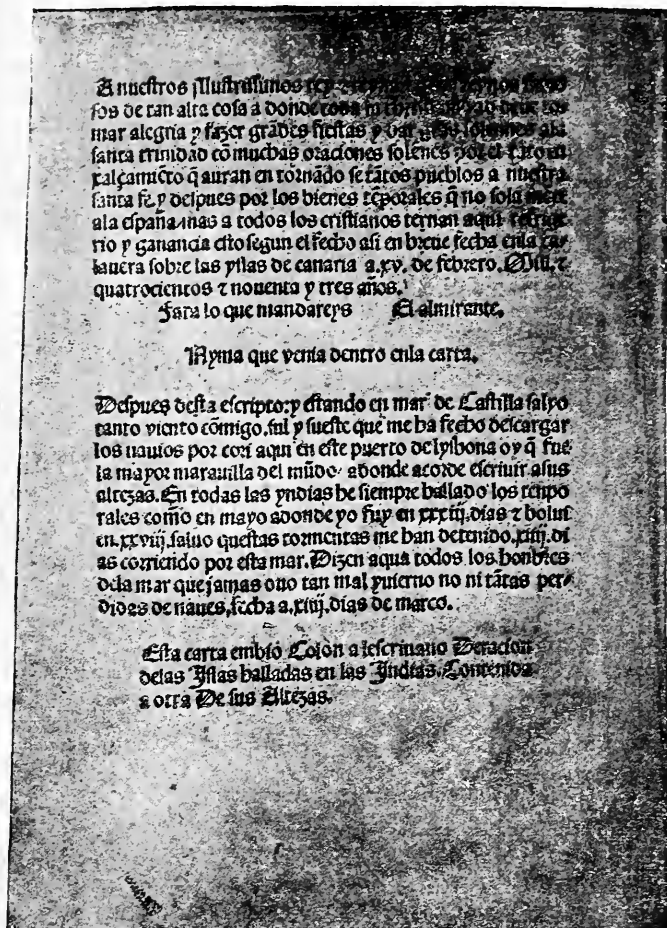 A nuestros illustrissimos rey z
sos de tan alta cosa a donde toda
mar alegria y fazer grādes fiestas y dar solennes ala
santa trinidad cō muchas oraciones solenes por el
xalçamiēto q̄ auran en tornādo se tātos pueblos a nuestra
santa fe, y despues por los bienes tēporales q̄ no sola mēte
ala españa mas a todos los cristianos ternan aqui refrige
rio y ganancia esto segun el fecho asi en breue fecha enla ca
lauera sobre las yslas de canaria a.xv. de febrero. Mill. z
quatrocientos z nouenta y tres años.
Fara lo que mandareys El almirante.
Nyma que venia dentro enla carta.
Despues desta escripto: y estando en mar de Castilla salyo
tanto viento cōmigo. sul y sueste que me ha fecho descargar
los nauios por cori aqui en este puerto de lysbona oy q̄ fue
la mayor marauilla del mūdo adonde acorde escriuir asus
altezas. En todas las yndias he siempre hallado los tenpo
rales como en mayo adonde yo fuy en xxxiij. dias z bolui
en. xxviij. saluo questas tormentas me han detenido. xiiij. di
as corriendo por esta mar. Dizen aqua todos los honbres
dela mar que jamas ouo tan mal yuierno no ni tātas per
didas de naues, fecha a. xiiij. dias de março.
Esta carta embio Colon a
delas Islas halladas en las Indias. Contenida
a otra De sus Altezas.